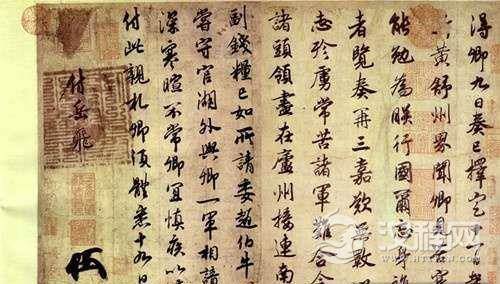 得卿九日奏已擇定
黃舒州界聞卿見苦寒
能勉為朕行國爾忘身誰
者覽奏再三嘉歎無斁
志殄虜常苦諸軍難合
諸頭領盡在廬州接連南
副錢糧已如所請委趙伯牛
嘗守官湖外與卿一軍相諳
深寒暄不常卿宜慎疾以
付此親札卿須體悉十九日
付岳飛
汉程网